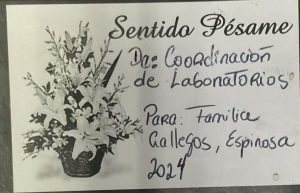 Sentido Pésame
De: Coordinación
de Laboratorios
Para: Familia
Gallegos, Espinosa
2024